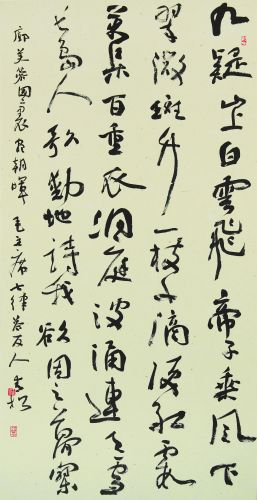 九疑山上白雲飛帝子乘風下
翠微斑竹一枝千滴淚紅霞
萬朵百重衣洞庭波涌連天雪
長島人歌動地詩我欲因之夢寥
廓芙蓉國裏盡朝暉 毛主席七律答友人